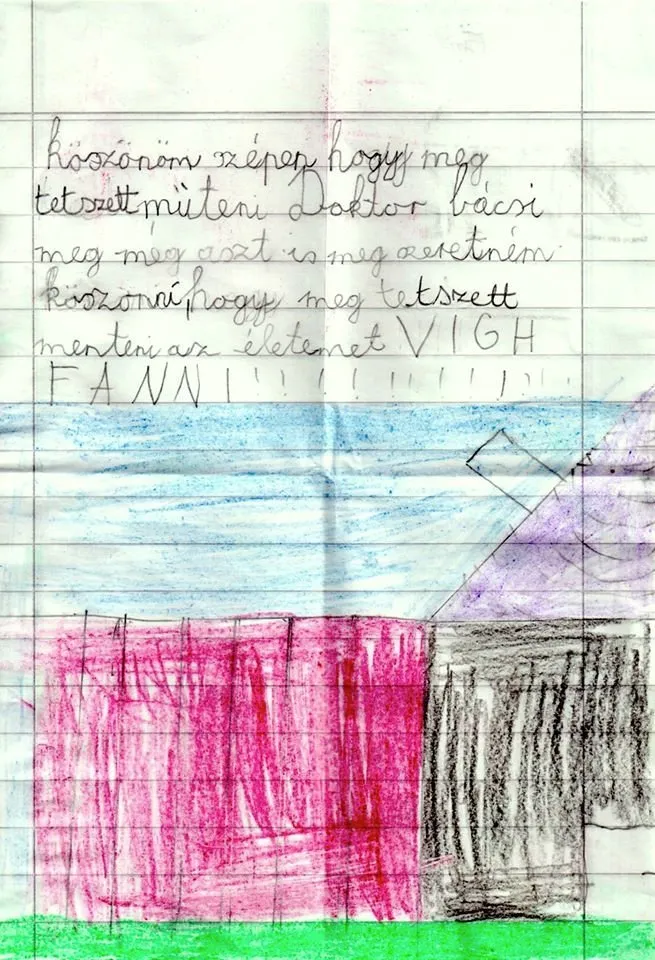 köszönöm szépen hogyj meg
tetszett műteni Doktor bácsi
meg még aszt is meg szeretném
köszönni, hogyj meg tetszett
menteni az életemet VIGH
FANNI!!!!!!!!!!!!